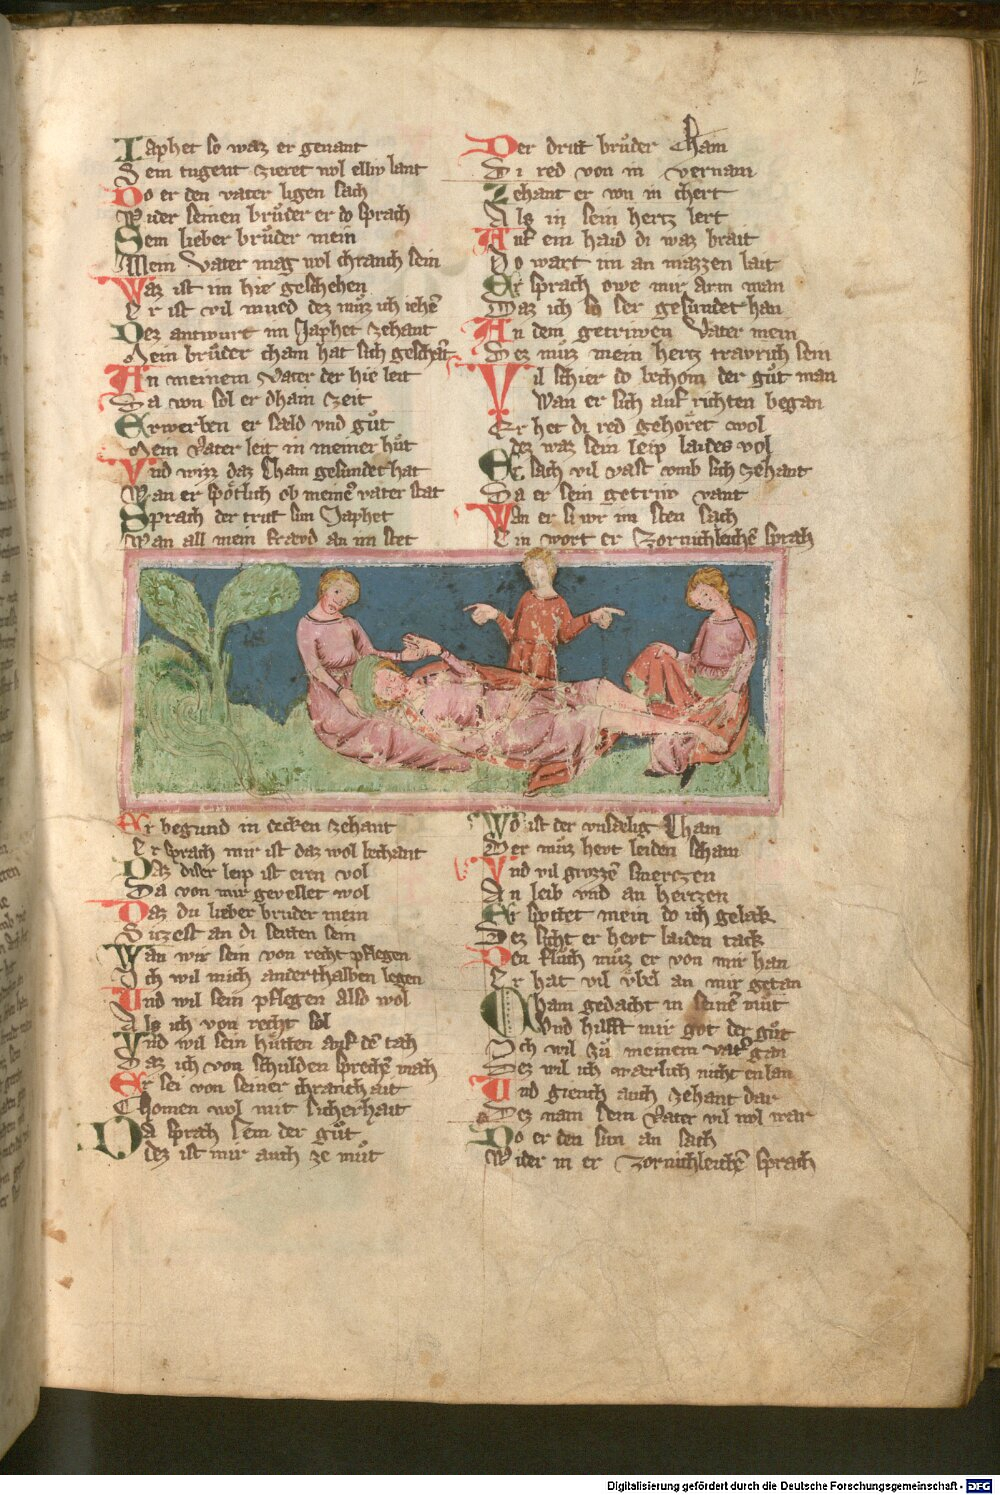 12
Iaphet so waz er genant
Sein tugent zieret wol elliv lant
Do er den vater ligen sach
Wider seinen brůder er do sprach
Sem lieber brůder mein
Mein vater mag wol chranch sein
Waz ist im hie geschehen
Er ist vil mued dez můz ich iehē
Dez antwurt im Japhet zehant
Mein brůder cham hat sich geschāt
An meinem vater der hie leit
Da von sol er dhain zeit
Erwerben er sald vnd gůt
Mein vater leit in meiner hůt
Vnd wizz daz Cham gesundet hat
Wan er spötlich ob meinē vater stat
Sprach der trut sun Japhet
Wan all mein fravd an im stet
Er begund in decken zehant
Er sprach mir ist daz wol bechant
Daz diser leip ist eren vol
Da von mir gevellet wol
Daz du lieber bruder mein
Sitzest an di seitten sein
Wan wir sein von recht pflegen
Ich wil mich anderthalben legen
Vnd wil sein pflegen also wol
Als ich von recht sol
Vnd wil sein hůtten auf dē tach
Daz ich von schulden sprechē mach
Er sei von seiner chranchait
Chomen wol mit sicherhait
Da sprach Sem der gůt
dez ist mir auch ze můt
Der drit brůder Cham
Di red von in vernam
Zehant er von in chert
Als in sein hertz lert
Auf ein haid di waz brait
Do wart im an mazzen lait
Er sprach owe mir arm man
Daz ich so ser gesundet han
An dem getriwen vater mein
Dez můz mein hertz travrich sein
Vil schier do bechom der gůt man
Wan er sich auf richten began
Er het di red gehöret wol
dez waz sein leip laides vol
Er sach vil vast vmb sich zehant
Da er sein getriw vant
Wan er si vor im sten sach
Ein wort er zornichleichē sprach
Wo ist der vnsaelig Cham
Der můz hevt leiden scham
Vnd vil grozzē smertzen
An leib vnd an hertzen
Er spottet mein do ich gelak
Dez sicht er hevt laiden tack
Den flůch můz er von mir han
Er hat vil vbel an mir getan
Cham gedacht in seinē můt
Vnd hilfft mir got der gůt
Ich wil zů meinem vat̄ gan
Dez wil ich warlich nicht enlan
Vnd giench auch zehant dar
Dez nam sein vater vil wol war
Do er den sun an sach
Wider in er zornichleichē sprach
Digitalisierung gefördert durch die Deutsche Forschungsgemeinschaft - DFG